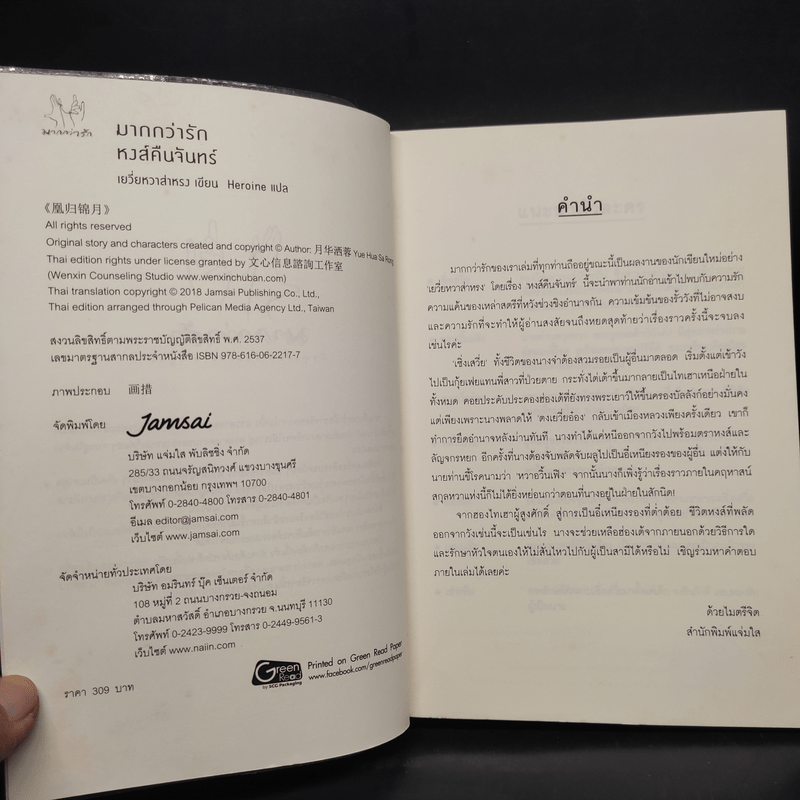 มากกว่ารัก
มากกว่ารัก
หงส์คืนจันทร์
เยวี่ยหวาส่าหรง เขียน Heroine แปล
《凰归锦月》
All rights reserved
Original story and characters created and copyright © Author: 月华洒蓉 Yue Hua Sa Rong
Thai edition rights under license granted by 文心信息諮詢工作室
(Wenxin Counseling Studio www.wenxinchuban.com)
Thai translation copyright © 2018 Jamsai Publishing Co., Ltd.,
Thai edition arranged through Pelican Media Agency Ltd., Taiwan
สงวนลิขสิทธิ์ตามพระราชบัญญัติลิขสิทธิ์ พ.ศ. 2537
เลขมาตรฐานสากลประจำหนังสือ ISBN 978-616-06-2217-7
ภาพประกอบ 画措
จัดพิมพ์โดย Jamsai
บริษัท แจ่มใส พับลิชชิ่ง จำกัด
285/33 ถนนจรัญสนิทวงศ์ แขวงบางขุนศรี
เขตบางกอกน้อย กรุงเทพฯ 10700
โทรศัพท์ 0-2840-4800 โทรสาร 0-2840-4801
อีเมล editor@jamsai.com
เว็บไซต์ www.jamsai.com
จัดจำหน่ายทั่วประเทศโดย
บริษัท อมรินทร์ บุ๊ค เซ็นเตอร์ จำกัด
108 หมู่ที่ 2 ถนนบางกรวย-จงถนอม
ตำบลมหาสวัสดิ์ อำเภอบางกรวย จ.นนทบุรี 11130
โทรศัพท์ 0-2423-9999 โทรสาร 0-2449-9561-3
เว็บไซต์ www.naiin.com
Green Read
by SCG Packaging
Printed on Green Read Paper
www.facebook.com/greenreadpaper
ราคา 309 บาท
คำนำ
มากกว่ารักของเราเล่มที่ทุกท่านถืออยู่ขณะนี้เป็นผลงานของนักเขียนใหม่อย่าง
'เยวี่ยหวาส่าหรง' โดยเรื่อง 'หงส์คืนจันทร์' นี้จะนำพาท่านนักอ่านเข้าไปพบกับความรัก
ความแค้นของเหล่าสตรีที่หวังช่วงชิงอำนาจกัน ความเข้มข้นของรั้ววังที่ไม่อาจสงบ
และความรักที่จะทำให้ผู้อ่านสงสัยจนถึงหยดสุดท้ายว่าเรื่องราวครั้งนี้จะจบลง
เช่นไรค่ะ
'เซิ่งเสวี่ย' ทั้งชีวิตของนางจำต้องสวมรอยเป็นผู้อื่นมาตลอด เริ่มตั้งแต่เข้าวัง
ไปเป็นกุ้ยเฟยแทนพี่สาวที่ป่วยตาย กระทั่งไต่เต้าขึ้นมากลายเป็นไทเฮาเหนือฝ่ายใน
ทั้งหมด คอยประคับประคองฮ่องเต้ที่ยังทรงพระเยาว์ให้ขึ้นครองบัลลังก์อย่างมั่นคง
แต่เพียงเพราะนางพลาดให้ 'ตงเยวี่ยอ๋อง' กลับเข้าเมืองหลวงเพียงครั้งเดียว เขาก็
ทำการยึดอำนาจหลังม่านทันที นางทำได้แค่หนีออกจากวังไปพร้อมตราหงส์และ
ลัญจกรหยก อีกครั้งที่นางต้องจับพลัดจับผลูไปเป็นอี๋เหนียงรองของผู้อื่น แต่งให้กับ
นายท่านขี้โรคนามว่า 'หวาอวิ้นเฟิง' จากนั้นนางก็เพิ่งรู้ว่าเรื่องราวภายในคฤหาสน์
สกุลหวาแห่งนี้ก็ไม่ได้ยิ่งหย่อนกว่าตอนที่นางอยู่ในฝ่ายในสักนิด!
จากฮองไทเฮาผู้สูงศักดิ์ สู่การเป็นอี๋เหนียงรองที่ต่ำต้อย ชีวิตหงส์ที่พลัด
ออกจากวังเช่นนี้จะเป็นเช่นไร นางจะช่วยเหลือฮ่องเต้จากภายนอกด้วยวิธีการใด
และรักษาหัวใจตนเองให้ไม่สั่นไหวไปกับผู้เป็นสามีได้หรือไม่ เชิญร่วมหาคำตอบ
ภายในเล่มได้เลยค่ะ
ด้วยไมตรีจิต
สำนักพิมพ์แจ่มใส